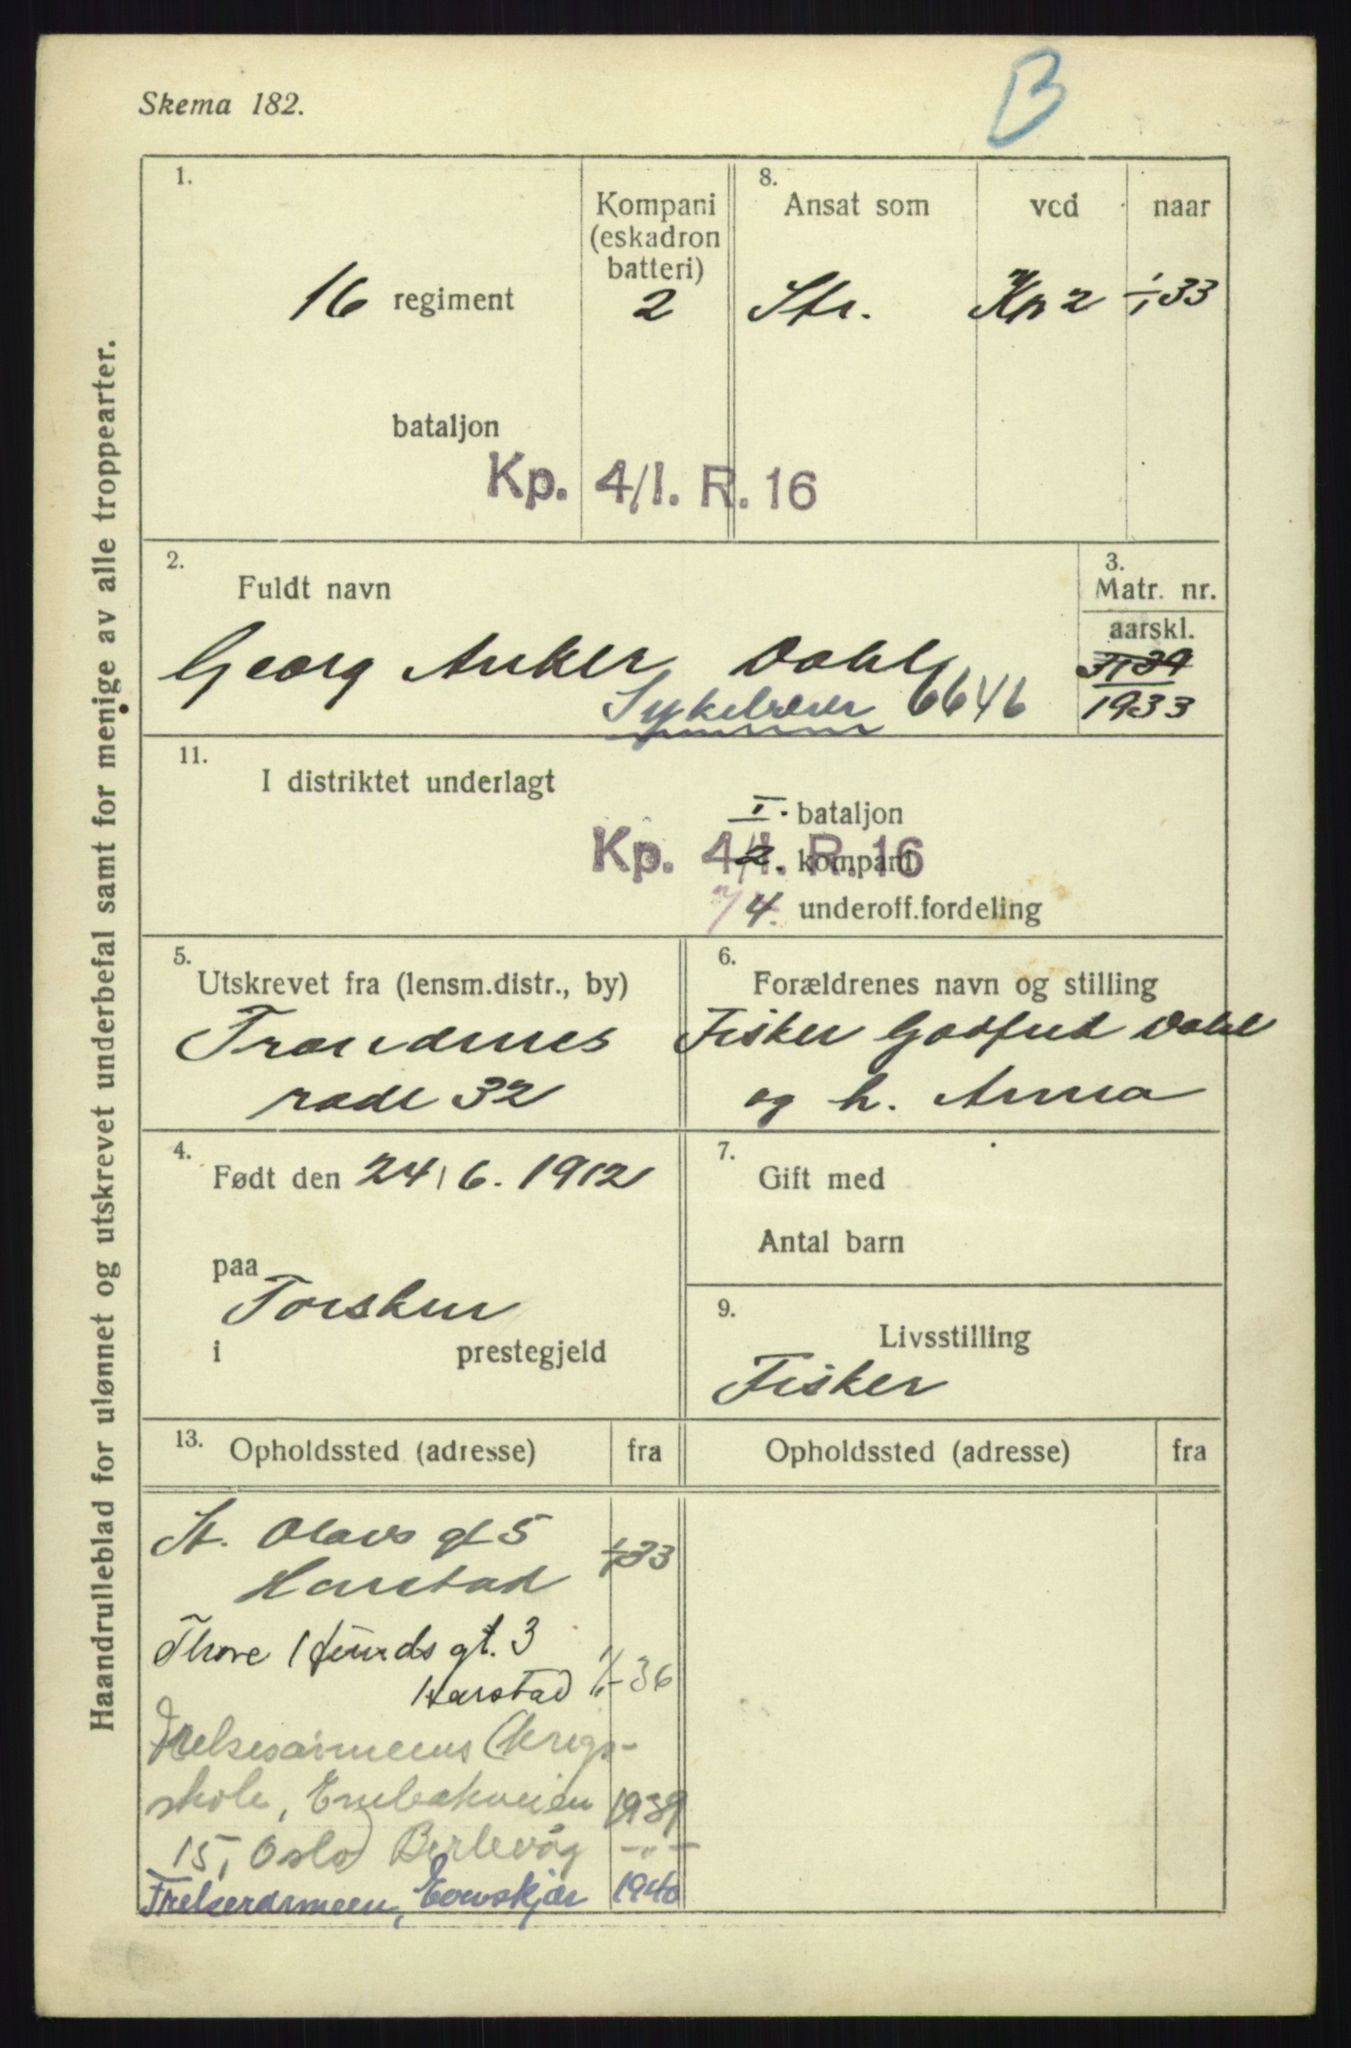 Skema 182.
B
Haandrulleblad for ulønnet og utskrevet underbefal samt for menige av alle troppearter.
1.
16 regiment
bataljon
Kompani
(eskadron
batteri)
2
8.
Ansat som
ved
naar
Str.
Kp 2
1/1 33
Kp. 4/I. R. 16
2.
Fuldt navn
Georg Anker Dahl
Sykebærer 6646
3.
Matr. nr.
aarskl.
1933
11.
I distriktet underlagt
I. bataljon
2. kompani
Kp. 4/I. R. 16
4. underoff.fordeling
5.
Utskrevet fra (lensm.distr., by)
Trondenes
rode 32
6.
Forældrenes navn og stilling
Fisker Godfred Dahl
og h. Anna
4.
Født den 24/6. 1912
paa
Torsken
i prestegjeld
7.
Gift med
Antal barn
9.
Livsstilling
Fisker
13. Opholdssted (adresse) fra
Opholdssted (adresse) fra
St. Olavs gt 5
Harstad 1/1 33
Thore Hunds gt. 3
Harstad 1/1-36
Frelsesarmeens Krigs-
skole, 1939
15, Oslo Berlevåg -"-
Frelsesarmeen, 1940